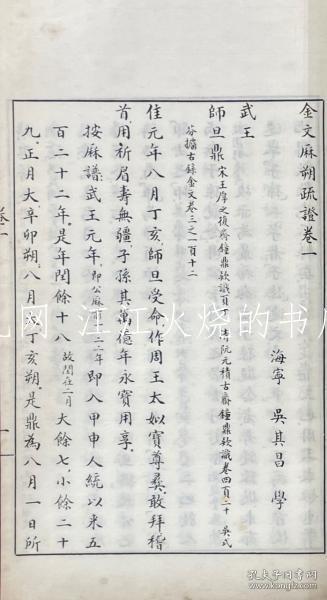 金文麻朔疏證卷一
海寧 吳其昌 學
武王
師旦鼎 宋王厚之復齋鐘鼎欵識頁 清阮元積古齋鐘鼎欵識卷四頁二十 吳式
芬攈古錄金文卷三之一頁十二
隹元年八月丁亥師旦受命作周王太姒寶尊彝敢拜稽
首用祈眉壽無疆子孫其萬億年永寶用享
按麻譜武王元年即公麻前 二二年即入甲申人統以來五
百二十二年是年閏餘十八故閏在二月大餘七小餘二十
九正月大辛卯朔八月 丁亥朔是鼎為八月一日所